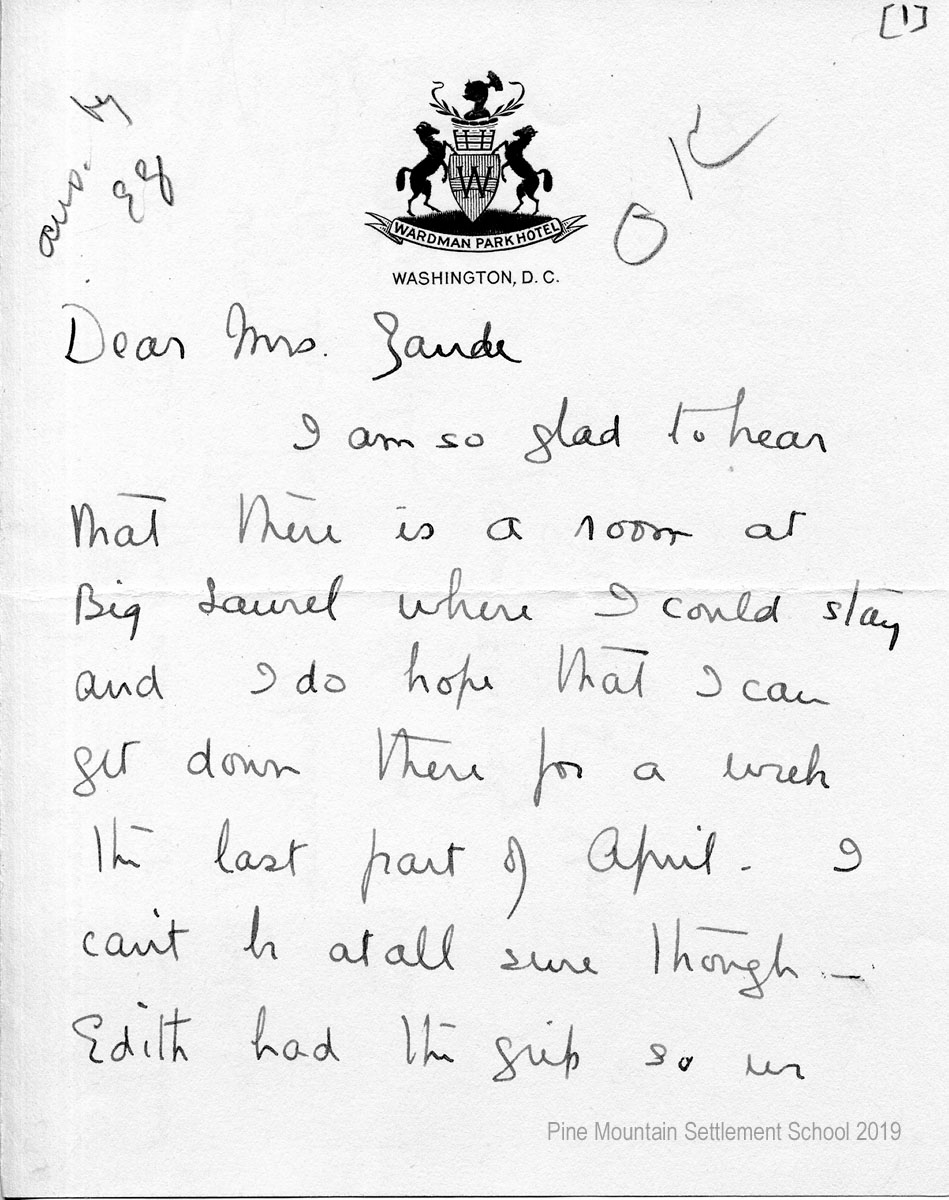 [1]
ans. by
EZ
OK
W
WARDMAN PARK HOTEL
WASHINGTON, D. C.
Dear Mrs. Zande
I am so glad to hear
that there is a room at
Big Laurel where I could stay
and I do hope that I can
get down there for a week
the last part of April. I
can't be at all sure though –
Edith had the grip so we
Pine Mountain Settlement School 2019